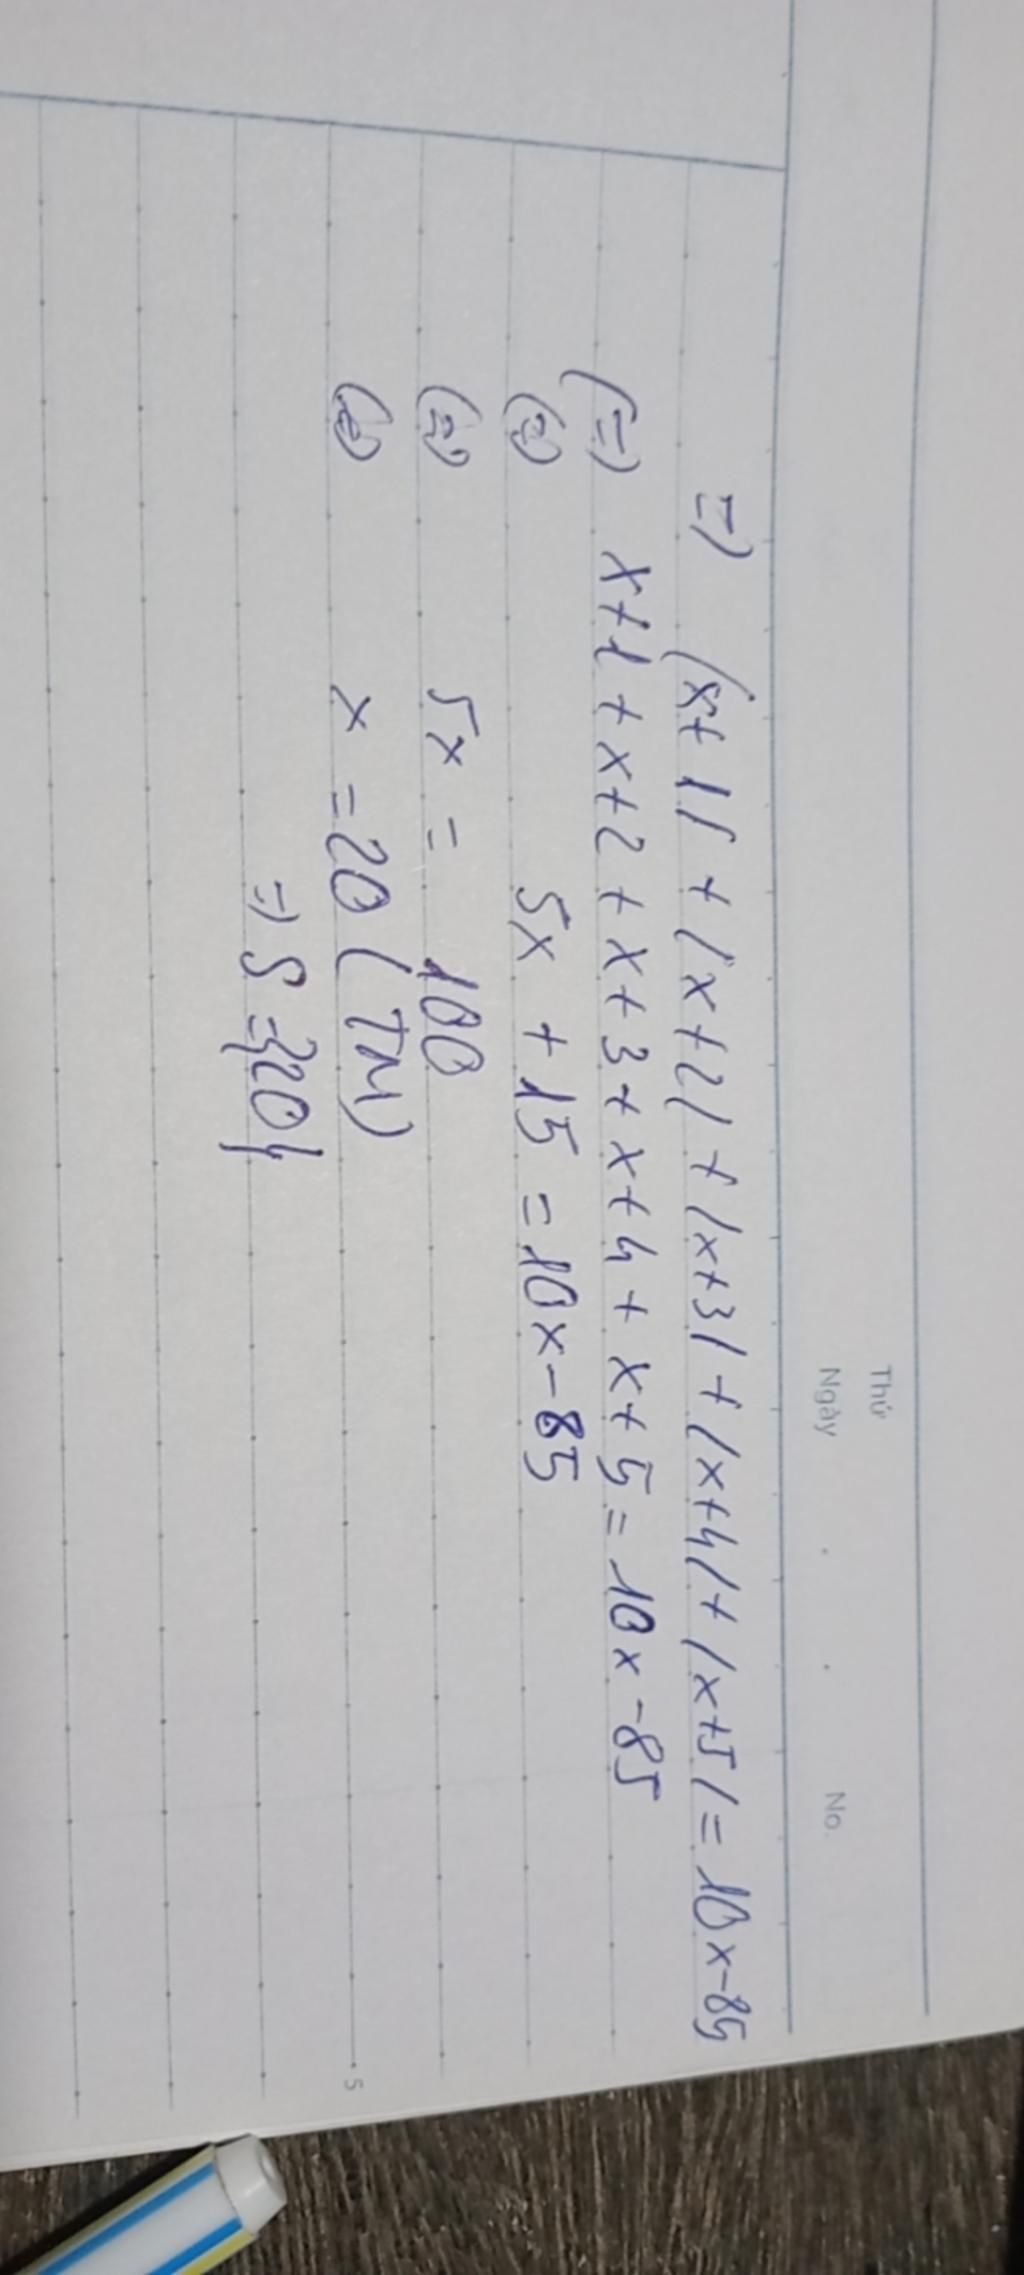 Thứ
Ngày
No.
=) |x+1| + |x+2| + |x+3| + |x+4| + |x+5| = 10x-85
(=) x+1 + x+2 + x+3 + x+4 + x+5 = 10x-85
(=) 5x + 15 = 10x-85
(=) 5x = 100
(=) x = 20 (TM)
=) S = {20}
5